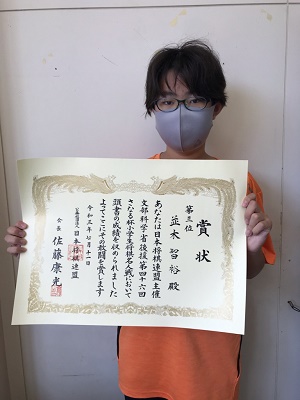 賞状
第三位
並木 智裕 殿
あなたは日本将棋連盟主催
文部科学省後援第四十六回
さなる杯小学生将棋名人戦において
頭書の成績を収められました
よってここにその敢闘を賞します
令和三年七月十一日
公益社団法人 日本将棋連盟
会長 佐藤康光